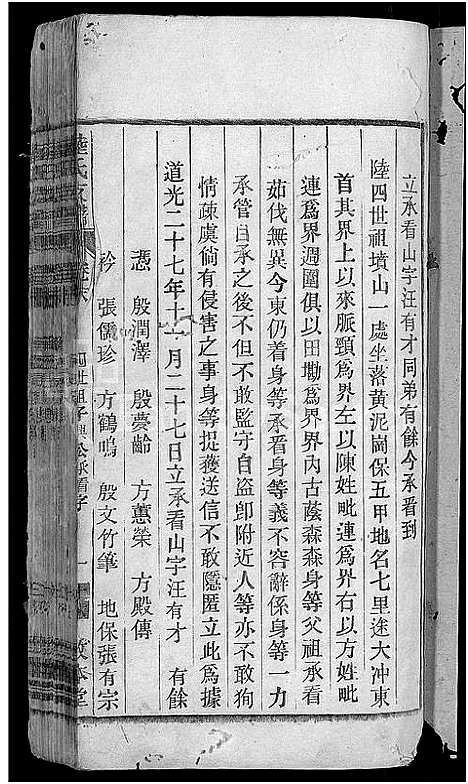 立承看山字汪有才同弟有餘今承看到
陸四世祖墳山一處坐落黄泥崗保五甲地名七里途大冲東
首其界上以來脈頸爲界左以陳姓毗連爲界右以方姓毗
連爲界週圍俱以田塝爲界界内古蔭森森身等父祖承看
茹伐無異今東仍着身等承看身等義不容辭係身等一力
承管自承之後不但不敢監守自盗卽附近人等亦不敢狥
情疎虞倘有侵害之事身等捉獲送信不敢隱匿立此爲據
道光二十七年十一月二十七日立承看山字汪有才 有餘
憑 殷潤澤 殷夢齡 方蕙榮 方殿傳
衿 張儒珍 方鶴鳴 殷文竹筆 地保張有宗
陸氏 四世祖子興公承看字 一